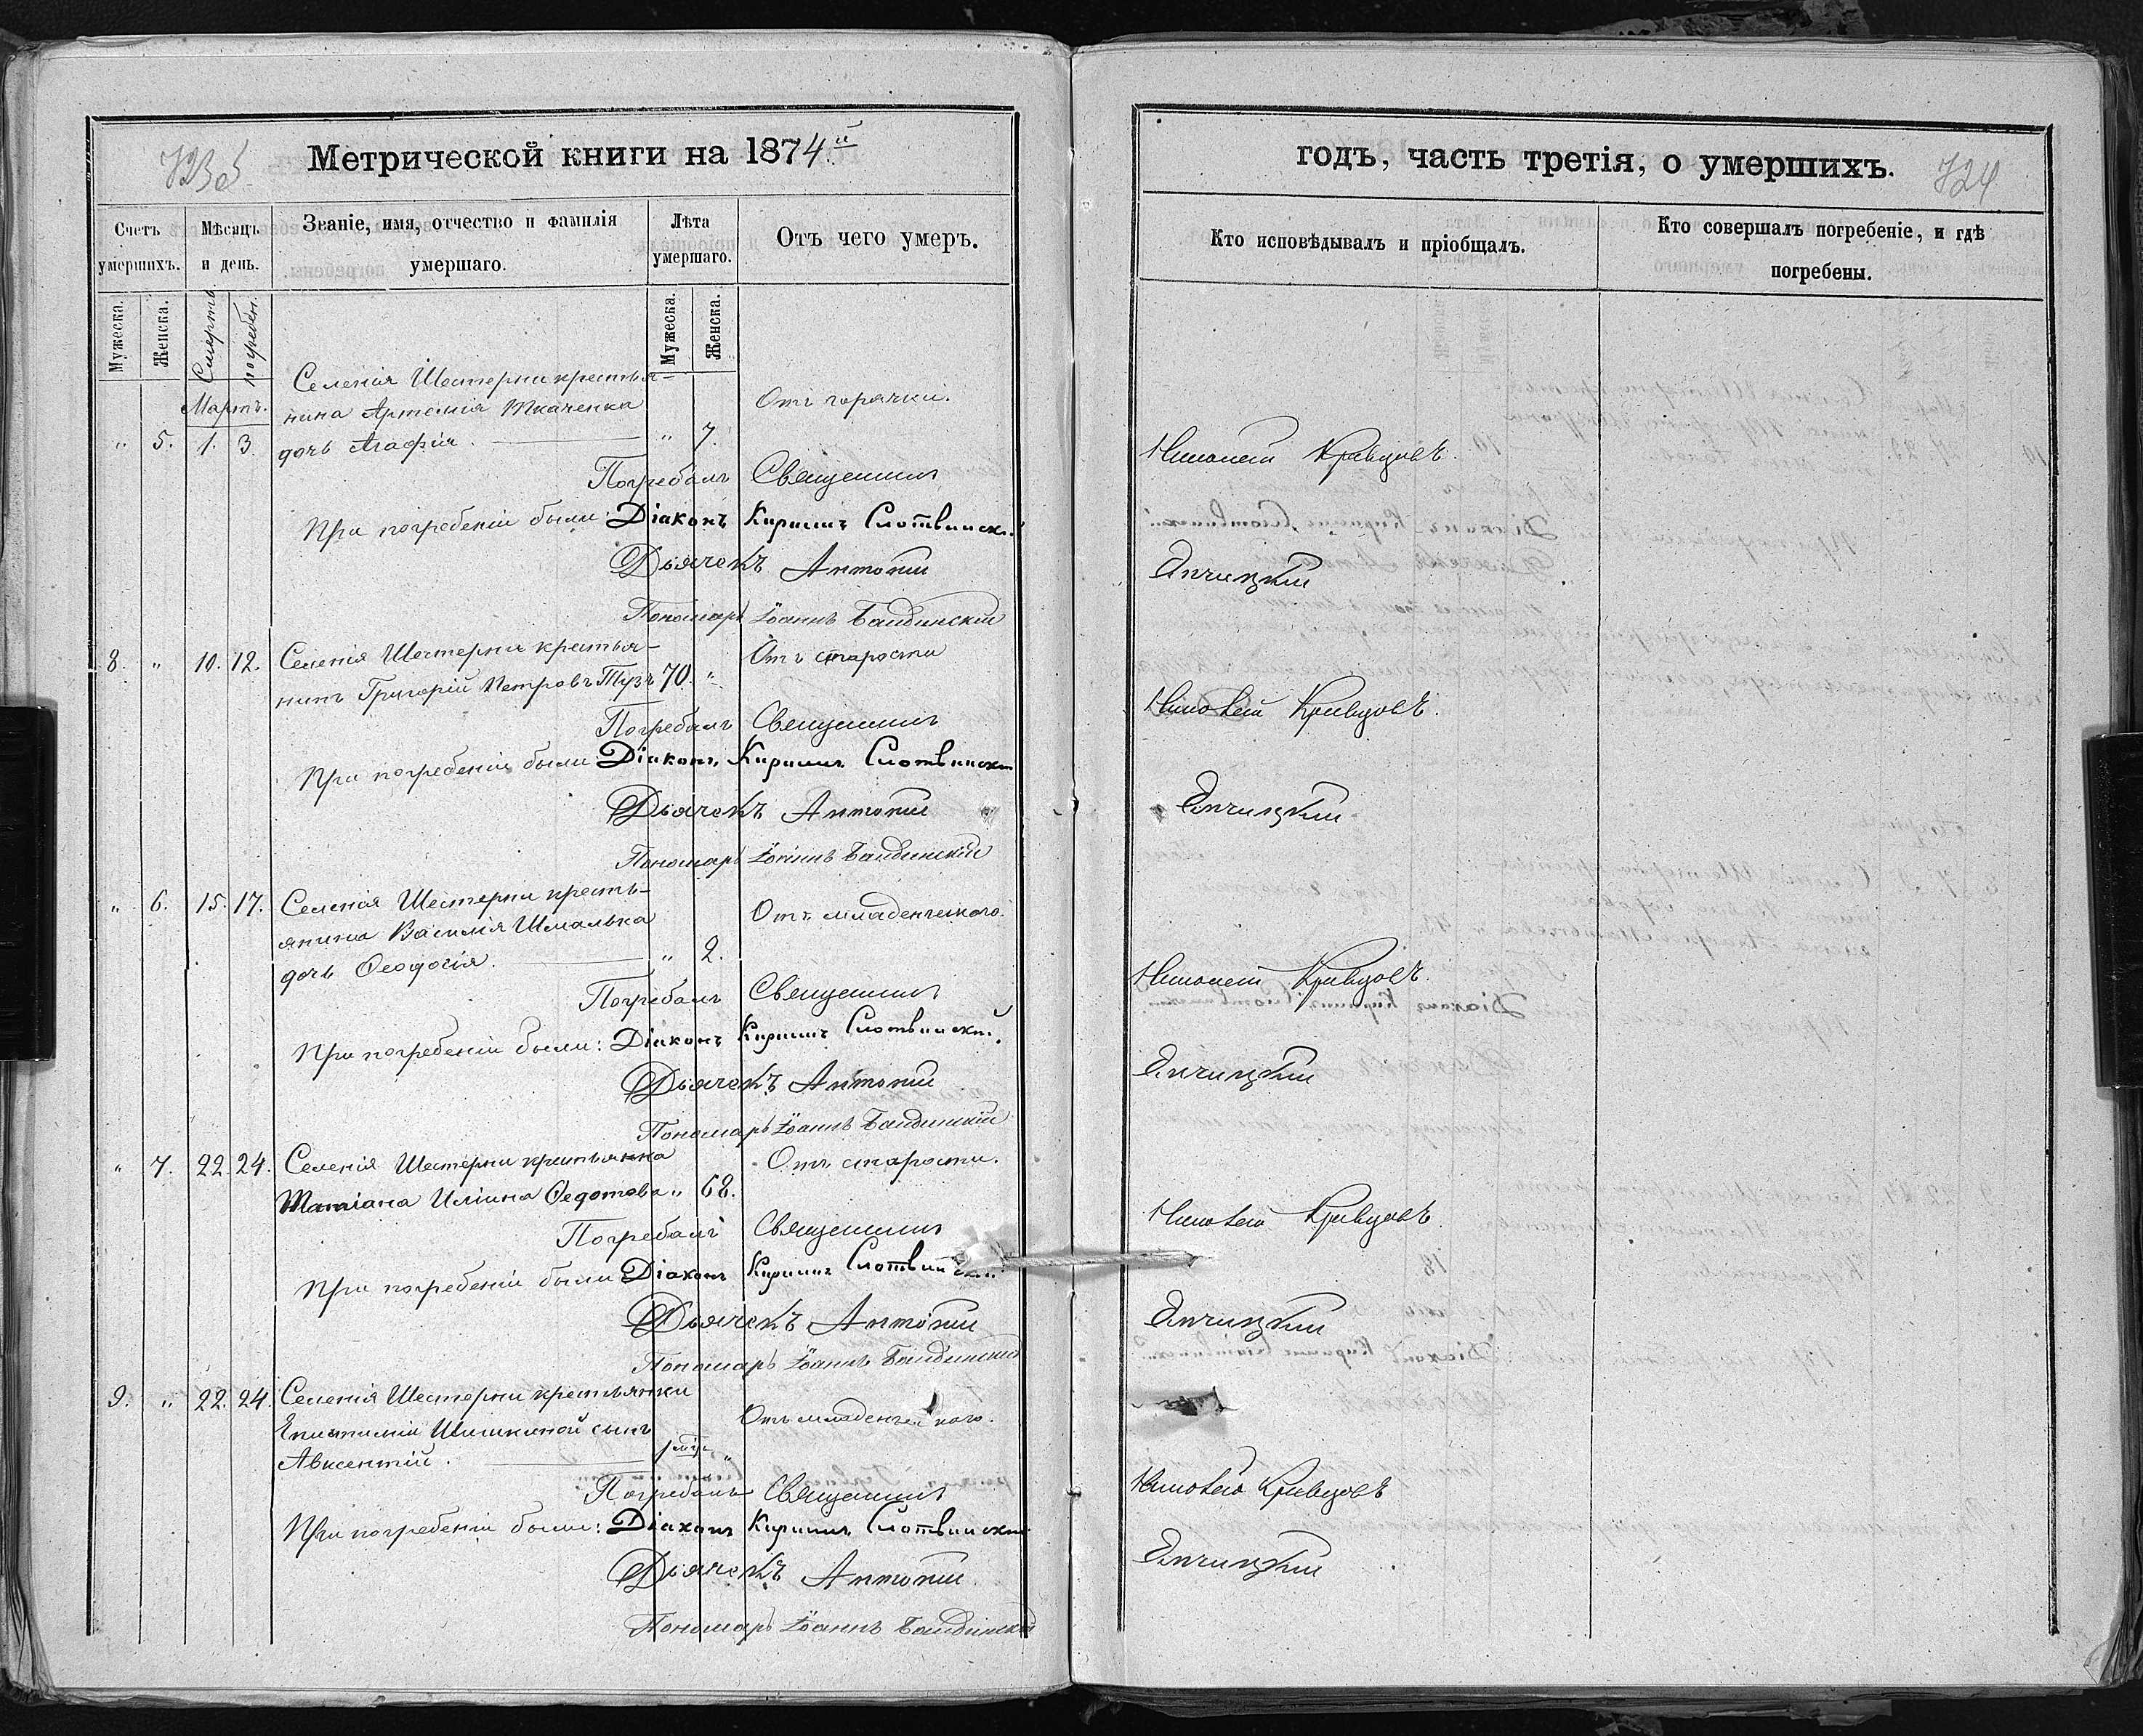 Метрической книги на 1874й
годъ, часть третія, о умершихъ.
724
Счетъ умершихъ.
Мѣсяцъ и день.
Званіе, имя, отчество и фамилія умершаго.
Лѣта умершаго.
Отъ чего умеръ.
Кто исповѣдывалъ и пріобщалъ.
Кто совершалъ погребеніе, и гдѣ погребены.
Мужеска.
Женска.
Смерть
погребен.
Мужеска.
Женска.
Мартъ.
Селенія Шестерни крестья-
нина Артемія Ткаченка
Отъ горячки.
„ 5. 1. 3. дочь Агафія. „ 7.
Погребалъ Священникъ Николай Кривцовъ.
При погребеніи были: Діаконъ Кириллъ Слотвинскі
Дьячекъ Антоній Янчицкій
Пономарь Іоаннъ Бандинскій
8. „ 10. 12. Селенія Шестерни крестья- Отъ старости
нинъ Григорій Петровъ Тузъ 70. „
Погребалъ Священникъ Николай Кривцовъ.
При погребеніи были Діаконъ Кириллъ Слотвинскі
Дьячекъ Антоній Янчицкій
Пономарь Іоаннъ Бандинскій
„ 6. 15. 17. Селенія Шестерни кресть-
янина Василія Шмалька Отъ младенческаго.
дочь Ѳеодосія. „ 2.
Погребалъ Священникъ Николай Кривцовъ.
При погребеніи были: Діаконъ Кириллъ Слотвинскій.
Дьячекъ Антоній Янчицкій
Пономарь Іоаннъ Бандинскій
„ 7. 22. 24. Селенія Шестерни крестьянка Отъ старости.
Татіана Иліина Ѳедотова „ 68.
Погребалъ Священникъ Николай Кривцовъ.
При погребеніи были Діаконъ Кириллъ Слотвинскій
Дьячекъ Антоній Янчицкій
Пономарь Іоаннъ Бандинскій
9. „ 22. 24. Селенія Шестерни крестьянки
Епистиміи Шишкиной сынъ Отъ младенческаго.
Авксентій. „
Погребалъ Священникъ Николай Кривцовъ
При погребеніи были: Діаконъ Кириллъ Слотвинскі
Дьячекъ Антоній Янчицкій
Пономарь Іоаннъ Бандинскій